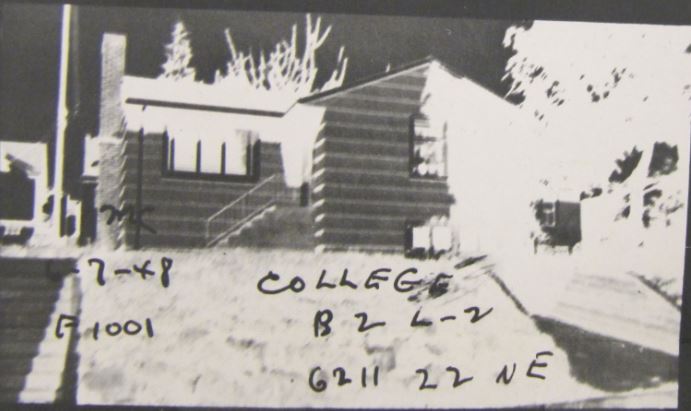 -7-48
F 1001
COLLEGE
B 2 L-2
6211 22 NE